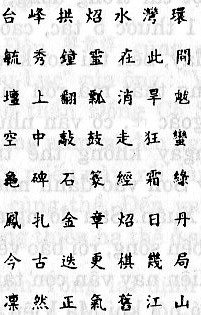 台峰拱炤水灣環
毓秀鐘靈在此間
壇上翻瓢消旱魃
空中敲鼓走狂蠻
龜碑石篆經霜綠
鳳扎金章炤日丹
今古迭更棋幾局
凜然正氣舊江山